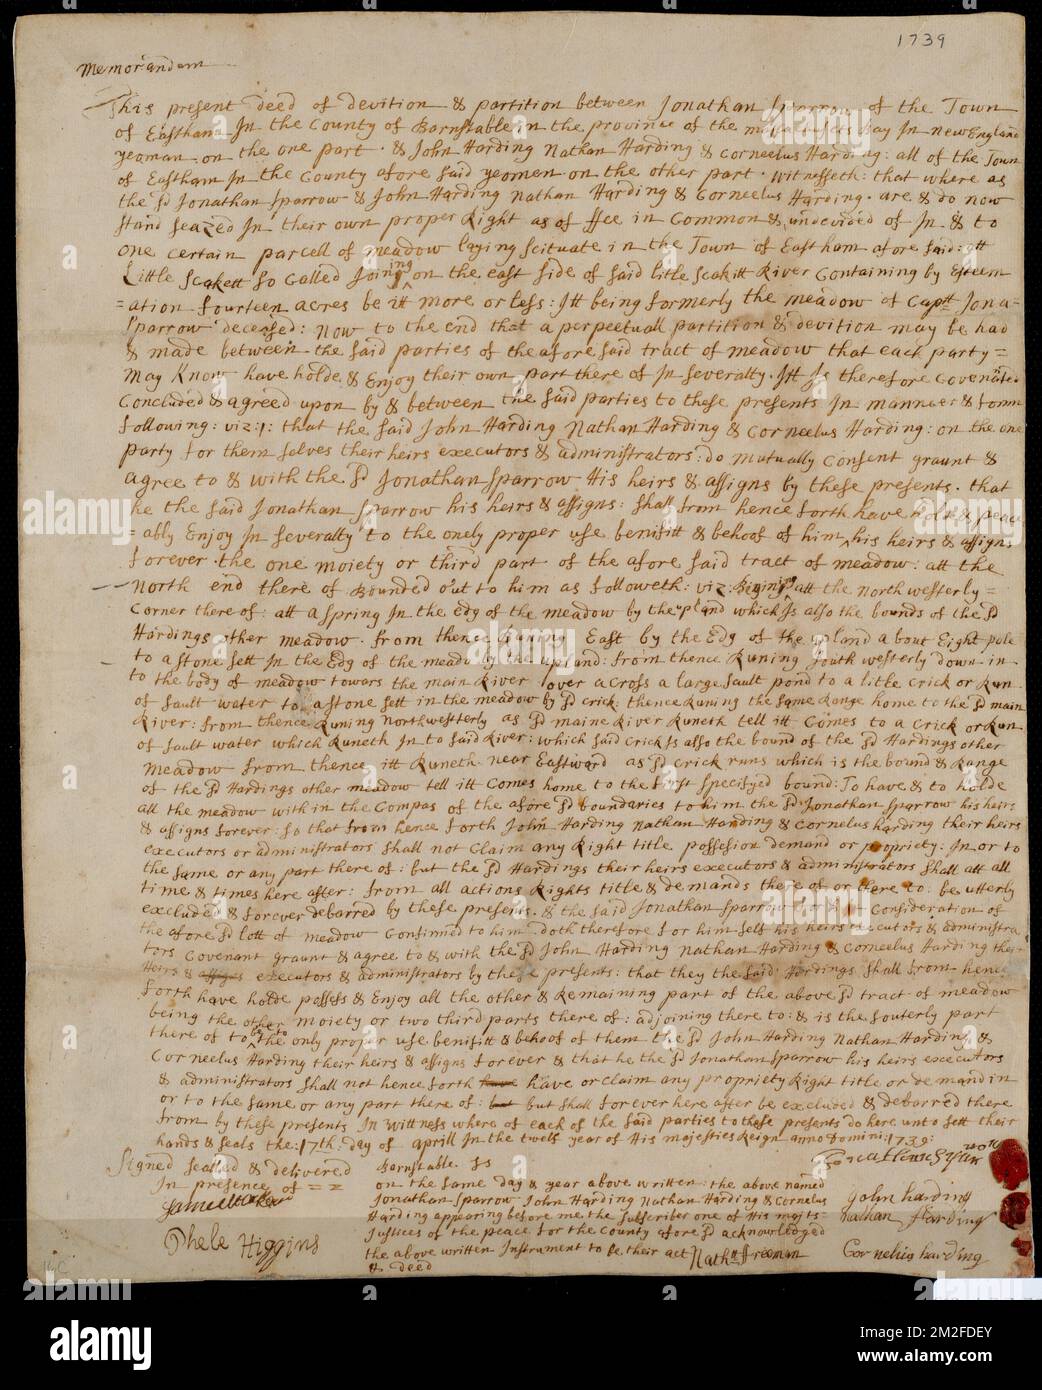 1739
Memorandem
This present deed of devition & partition between Jonathan Sparrow of the Town
of Eastham In the County of Barnstable in the province of the massachusets Bay In New England
yeoman on the one part · & John Harding Nathan Harding & Corneelus Harding: all of the Town
of Eastham In the County afore said yeomen on the other part · witnesseth: that where as
the sd Jonathan Sparrow & John Harding Nathan Harding & Corneelus Harding · are & do now
stand seazed In their own proper Right as of ffee in Common & undevided of In & to
one certain parcell of meadow laying scituate in the Town of Eastham afore said: att
Little Scakett so called Joining on the east side of said little Scakitt River Containing by Esteem
=ation fourteen acres be itt more or less: Itt being formerly the meadow of Captt Jona=
Sparrow deceased: Now to the end that a perpetuall partition & devition may be had
& made between the said parties of the afore said tract of meadow that each party=
May Know have holde & Enjoy their own part there of In severalty · Itt Is therefore Covenanted
Concluded & agreed upon by & between the said parties to these presents In manneer & form
following: viz:1: that the said John Harding Nathan Harding & Corneelus Harding: on the one
party for them selves their heirs executors & administrators: do mutually consent graunt &
agree to & with the sd Jonathan Sparrow His heirs & assigns by these presents · that
he the said Jonathan Sparrow his heirs & assigns: shall from hence forth have holde & peace
=ably Enjoy In severalty to the onely proper use benifitt & behoof of him his heirs & assigns
forever · the one moiety or third part of the afore said tract of meadow: att the
North end there of Bounded out to him as followeth: viz: Bigining att the north westerly=
Corner there of: att a spring In the edg of the meadow by the upland which Is also the bounds of the sd
Hardings other meadow · from thence Runing East by the Edg of the upland about Eight pole
to a stone sett In the Edg of the meadow by the upland: from thence Runing south westerly down in
to the body of meadow towars the main River over across a large sault pond to a litle crick or Run
of sault water to a stone sett in the meadow by sd crick: thence Runing the same Range home to the sd main
River: from thence Runing Northwesterly as sd maine River Runeth tell itt Comes to a crick or Run
of sault water which Runeth In to said River: which said crick Is also the bound of the sd Hardings other
meadow from thence itt Runeth near Eastward as sd crick runs which is the bound & Range
of the sd Hardings other meadow tell itt Comes home to the first specifyed bound: To have & to holde
all the meadow with in the Compas of the afore sd boundaries to him the sd Jonathan Sparrow his heirs
& assigns forever: so that from hence forth John Harding Nathan Harding & Cornelus harding their heirs
executors or administrators shall not claim any Right title possesion demand or propriety: In or to
the same or any part there of: but the sd Hardings their heirs executors & administrators shall att all
time & times here after: from all actions Rights title & demands there of or there to: be utterly
excluded & forever debarred by these presents · & the said Jonathan Sparrow for & in Consideration of
the afore sd lott of meadow Confirmed to him doth therefore for him self his heirs executors & administra
tors Covenant graunt & agree to & with the sd John Harding Nathan Harding & Corneelus Harding their
Heirs & assigns executors & administrators by these presents: that they the said Hardings shall from hence
forth have holde possess & Enjoy all the other & Remaining part of the above sd tract of meadow
being the other moiety or two third parts there of: adjoining there to: & is the souterly part
there of to the only proper use benifitt & behoof of them the sd John Harding Nathan Harding &
Corneelus Harding their heirs & assigns forever & that he the sd Jonathan Sparrow his heirs executors
& administrators shall not hence forth have have or claim any propriety Right title or demand in
or to the same or any part there of: but but shall forever here after be excluded & debarred there
from by these presents In wittness where of each of the said parties to these presents do here unto sett their
hands & seals the: 17th: day of aprill In the twels year of His majesties Reign anno Domini: 1739:
Signed sealled & delivered
In presence of ==
Phele Higgins
Barnstable Ss
on the same day & year above written: the above named
Jonathan Sparrow John Harding Nathan Harding & Cornelus
Harding appearing before me the subscriber one of His majts
Justices of the peace for the County afore sd acknowledged
the above written Instrument to be their act
& deed
Nathll Freeman
John harding
nathan Harding
Cornelius harding
alamy
Image ID: 2M2FDEY
www.alamy.com